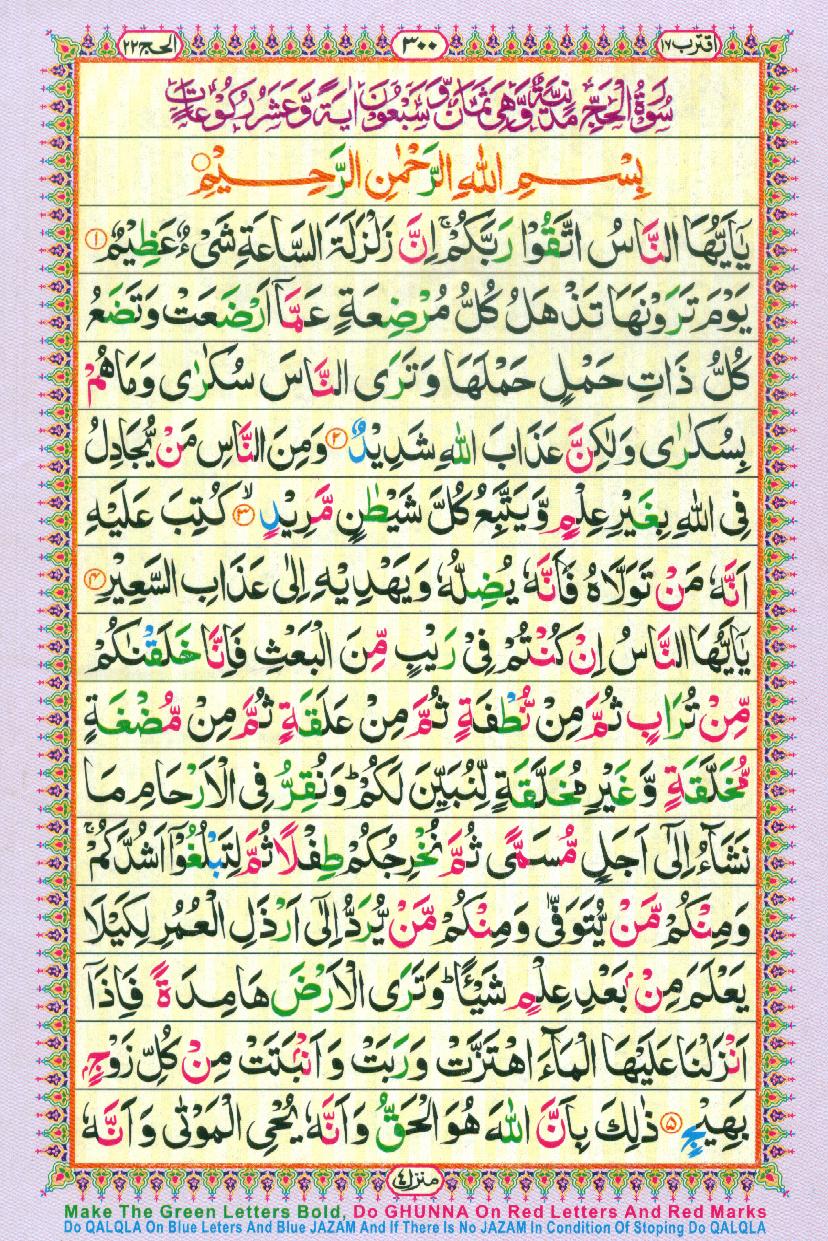 اقترب ١٧
٣٠٠
الحج ٢٢
سُوْرَةُ الْحَجِّ مَدَنِيَّةٌ وَّهِيَ ثَمَانٌ وَّسَبْعُوْنَ اٰيَةً وَّعَشَرُ رُكُوْعَاتٍ
بِسْمِ اللّٰهِ الرَّحْمٰنِ الرَّحِيْمِ ○
يٰۤاَيُّهَا النَّاسُ اتَّقُوْا رَبَّكُمْ ۚ اِنَّ زَلْزَلَةَ السَّاعَةِ شَیْءٌ عَظِيْمٌ ①
يَوْمَ تَرَوْنَهَا تَذْهَلُ كُلُّ مُرْضِعَةٍ عَمَّاۤ اَرْضَعَتْ وَتَضَعُ
كُلُّ ذَاتِ حَمْلٍ حَمْلَهَا وَتَرَى النَّاسَ سُكٰرٰى وَمَا هُمْ
بِسُكٰرٰى وَلٰكِنَّ عَذَابَ اللّٰهِ شَدِيْدٌ ② وَمِنَ النَّاسِ مَنْ يُّجَادِلُ
فِی اللّٰهِ بِغَيْرِ عِلْمٍ وَّيَتَّبِعُ كُلَّ شَيْطٰنٍ مَّرِيْدٍ ③ۙ كُتِبَ عَلَيْهِ
اَنَّهٗ مَنْ تَوَلَّاهُ فَاَنَّهٗ يُضِلُّهٗ وَيَهْدِيْهِ اِلٰى عَذَابِ السَّعِيْرِ ④
يٰۤاَيُّهَا النَّاسُ اِنْ كُنْتُمْ فِیْ رَيْبٍ مِّنَ الْبَعْثِ فَاِنَّا خَلَقْنٰكُمْ
مِّنْ تُرَابٍ ثُمَّ مِنْ نُّطْفَةٍ ثُمَّ مِنْ عَلَقَةٍ ثُمَّ مِنْ مُّضْغَةٍ
مُّخَلَّقَةٍ وَّغَيْرِ مُخَلَّقَةٍ لِّنُبَيِّنَ لَكُمْ ؕ وَنُقِرُّ فِی الْاَرْحَامِ مَا
نَشَآءُ اِلٰۤى اَجَلٍ مُّسَمًّى ثُمَّ نُخْرِجُكُمْ طِفْلًا ثُمَّ لِتَبْلُغُوْۤا اَشُدَّكُمْ ۚ
وَمِنْكُمْ مَّنْ يُّتَوَفّٰى وَمِنْكُمْ مَّنْ يُّرَدُّ اِلٰۤى اَرْذَلِ الْعُمُرِ لِكَيْلَا
يَعْلَمَ مِنْۢ بَعْدِ عِلْمٍ شَيْـًٔا ؕ وَتَرَى الْاَرْضَ هَامِدَةً فَاِذَاۤ
اَنْزَلْنَا عَلَيْهَا الْمَآءَ اهْتَزَّتْ وَرَبَتْ وَاَنْۢبَتَتْ مِنْ كُلِّ زَوْجٍۭ
بَهِيْجٍ ⑤ ذٰلِكَ بِاَنَّ اللّٰهَ هُوَ الْحَقُّ وَاَنَّهٗ يُحْیِ الْمَوْتٰى وَاَنَّهٗ
منزل٤
Make The Green Letters Bold, Do GHUNNA On Red Letters And Red Marks
Do QALQLA On Blue Leters And Blue JAZAM And If There Is No JAZAM In Condition Of Stoping Do QALQLA